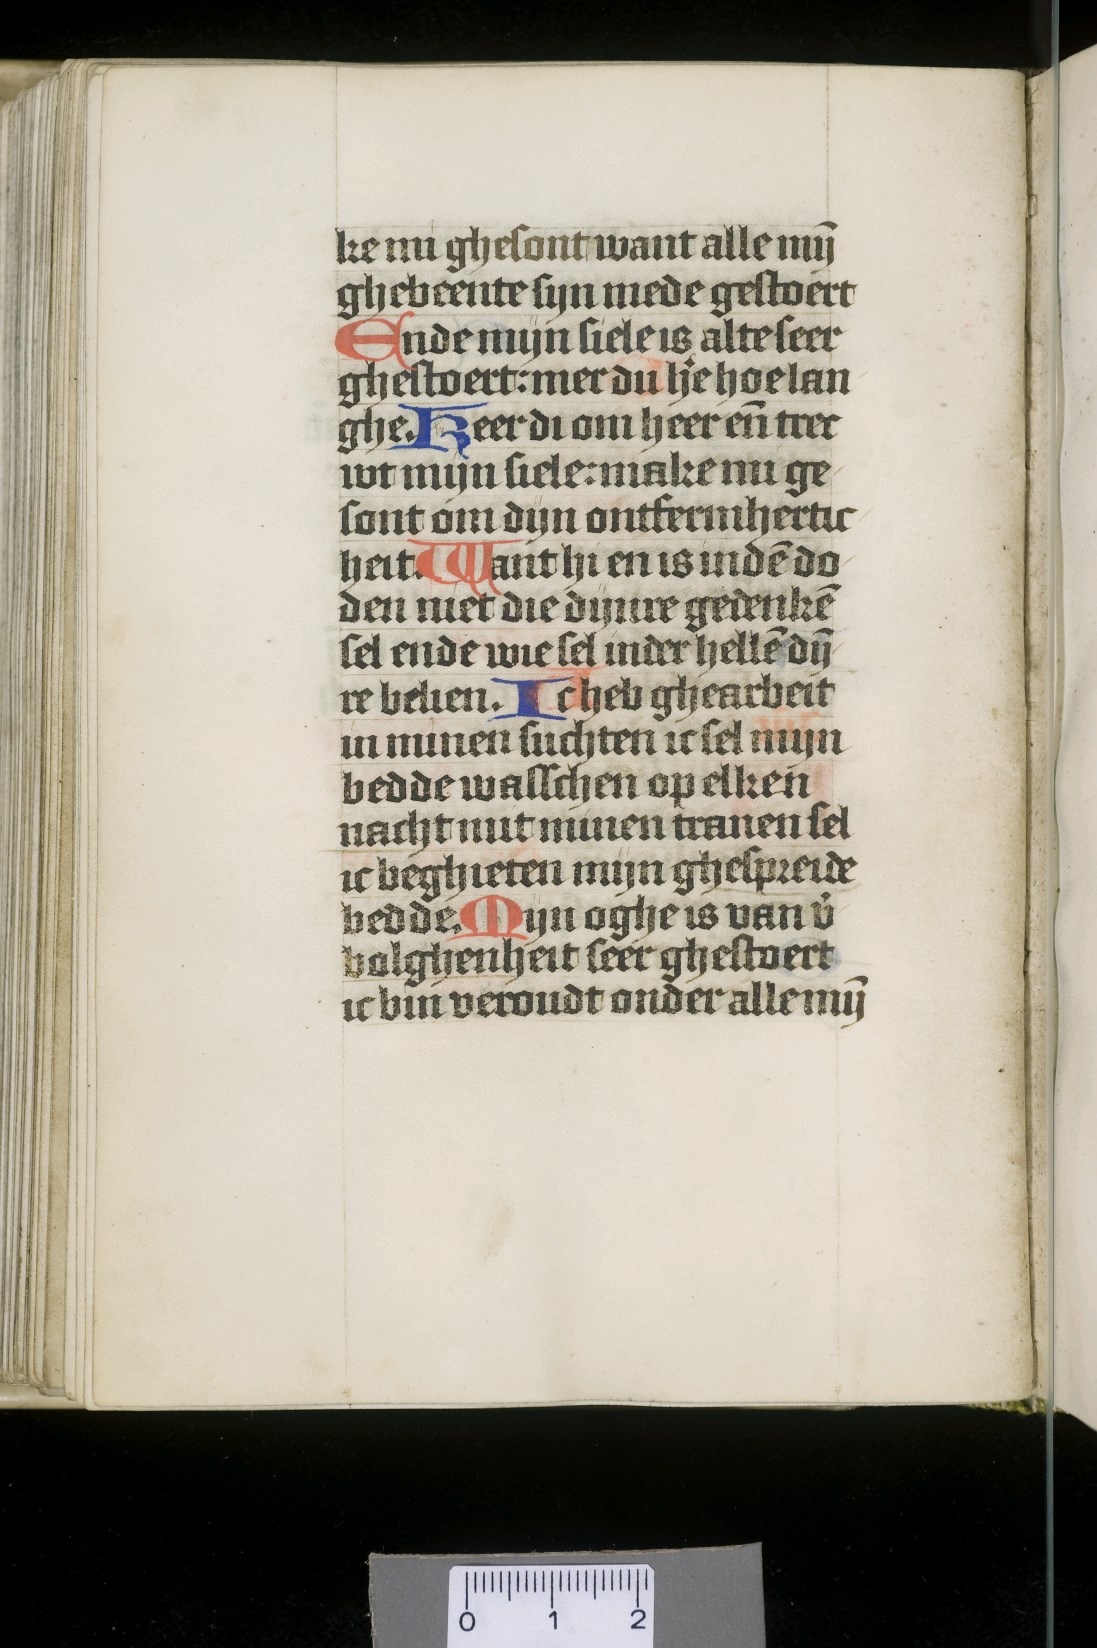 ke mi ghesont want alle mij̄
ghebeente sijn mede gestoert
Ende mijn siele is alte seer
ghestoert: mer du hʼe hoe lan
ghe. Keer di om heer en̄ trec
wt mijn siele: make mi ge
sont om dijn ontfermhertic
heit. Want hi en is indē do
den niet die dijnre gedenkē
sel ende wie sel inder hellē dij̄
re belien. Ic heb ghearbeit
in minen suchten ic sel mijn
bedde wasschen op elken
nacht mit minen tranen sel
ic beghieten mijn ghespreide
bedde. Mijn oghe is van v̓
bolghenheit seer ghestoert
ic bin veroudt onder alle mij̄
0 1 2